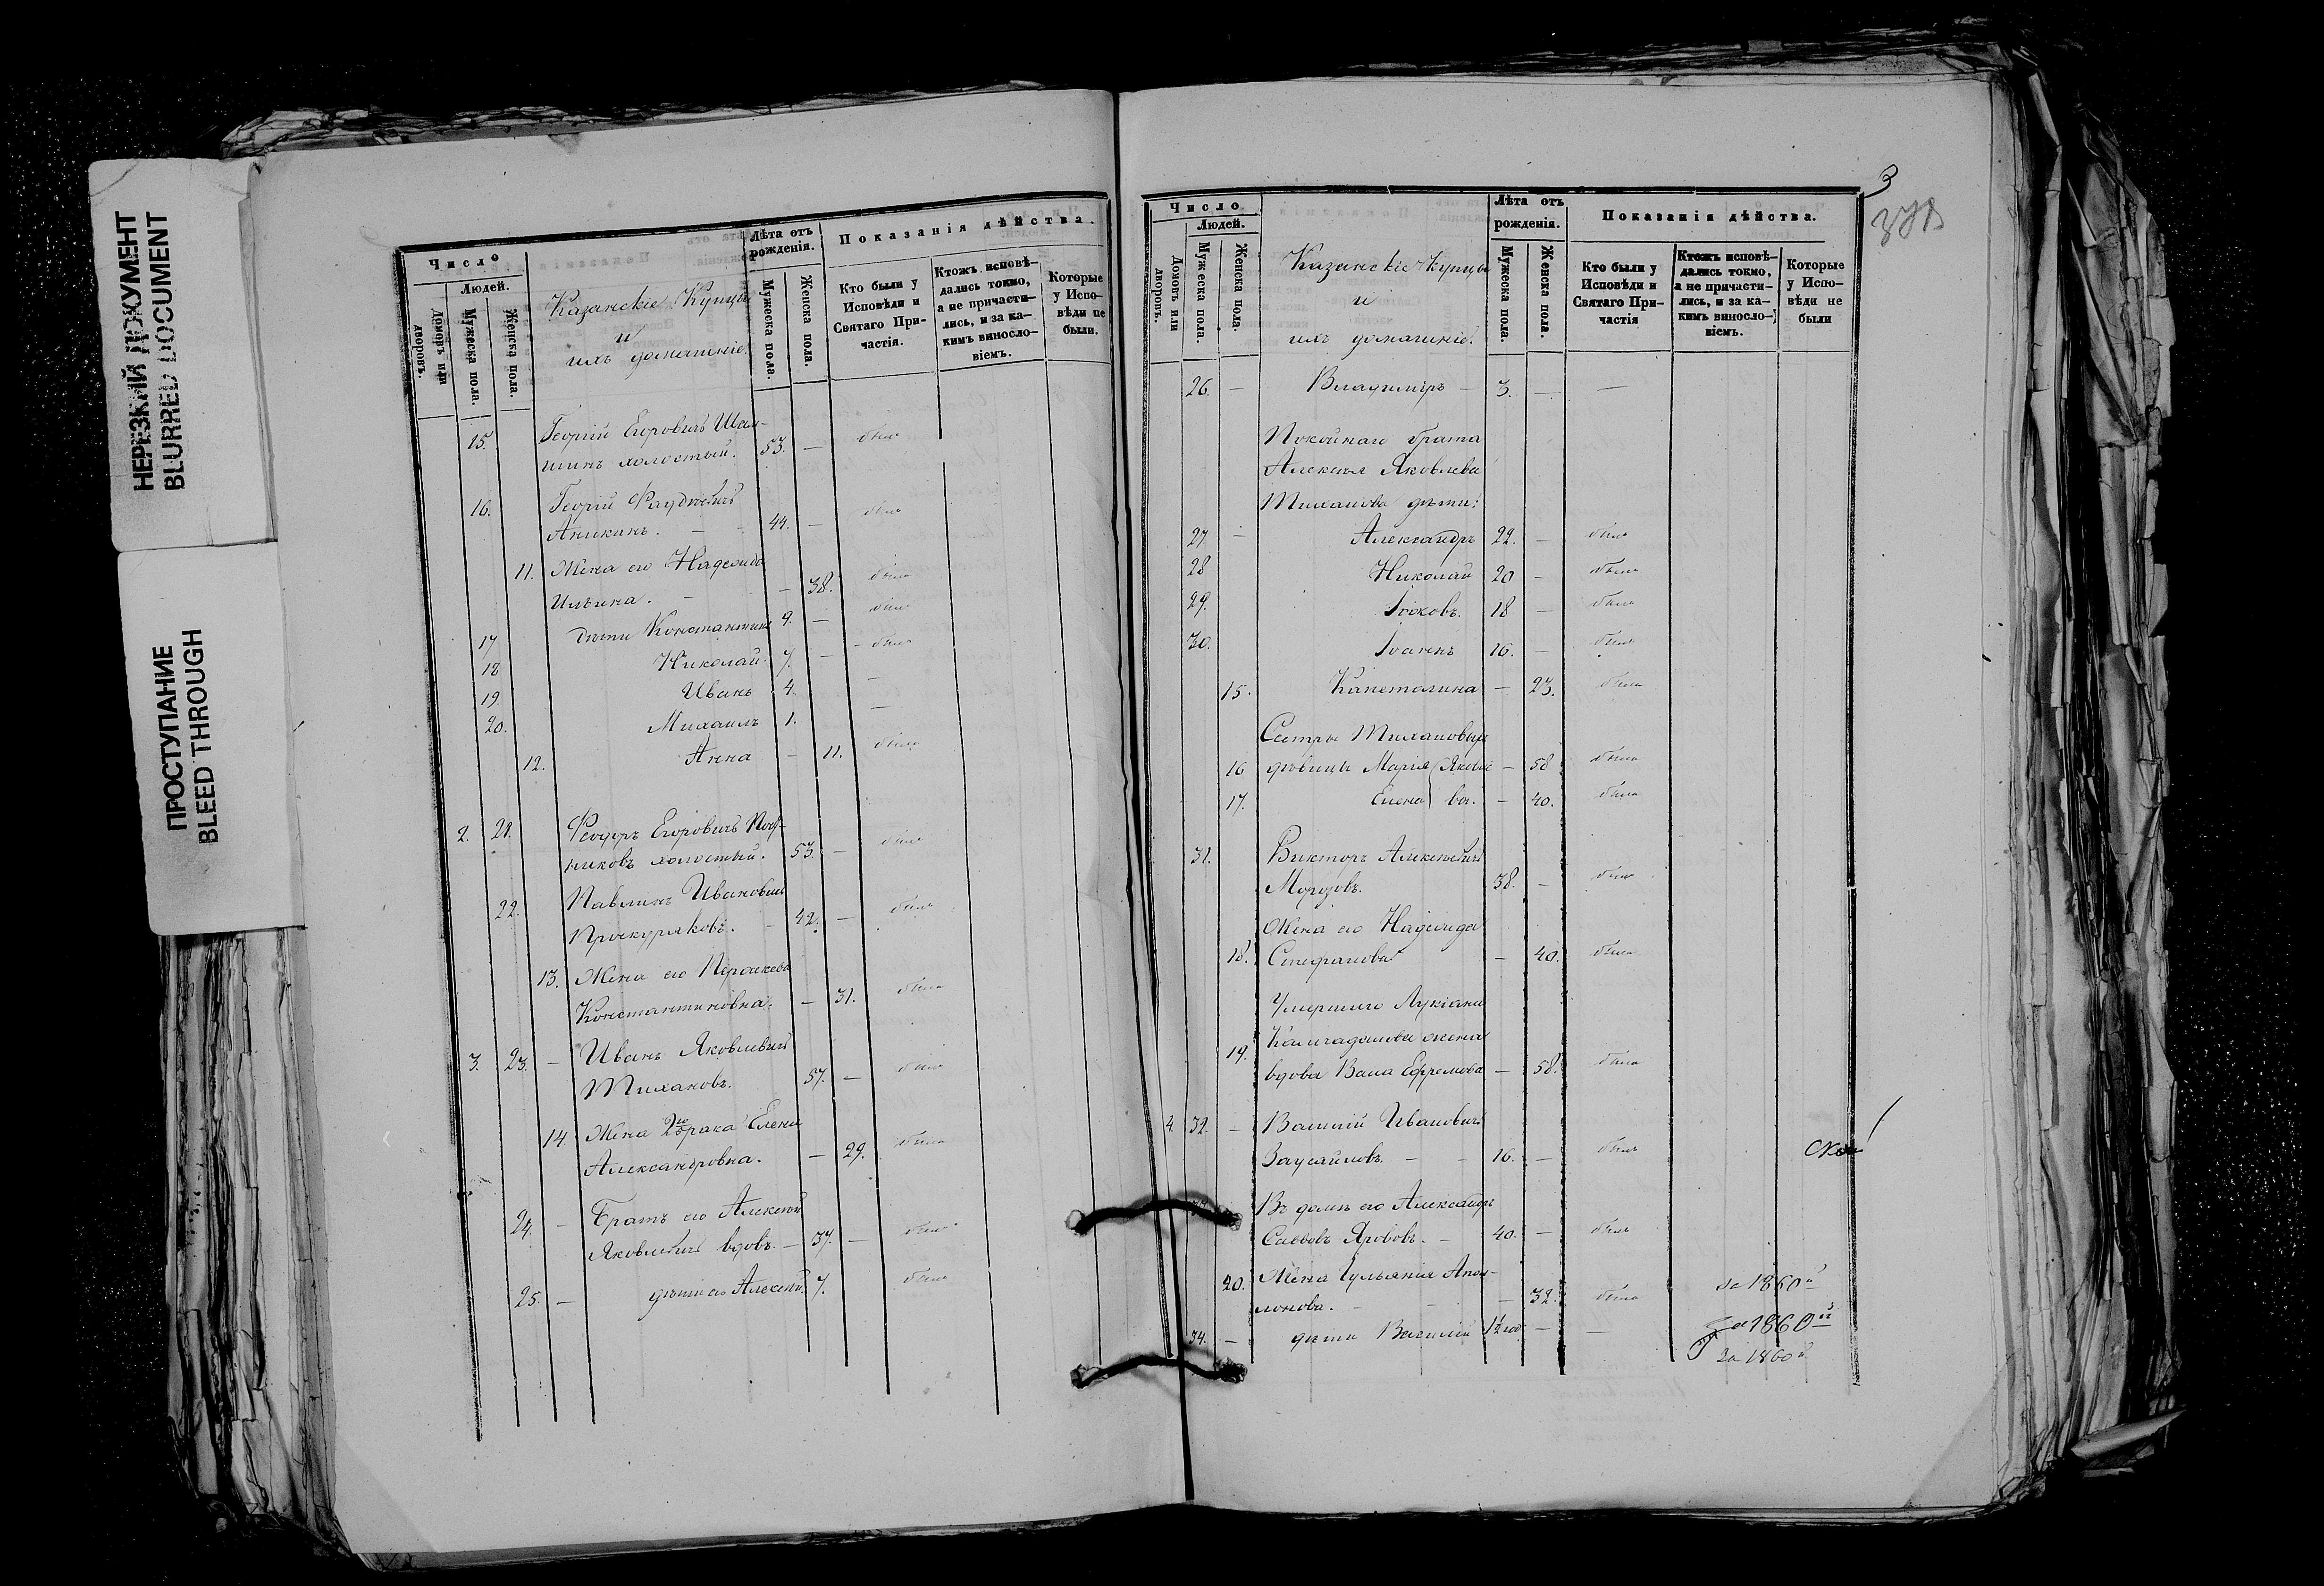 НЕРЕЗКИЙ ДОКУМЕНТ
BLURRED DOCUMENT
ПРОСТУПАНИЕ
BLEED THROUGH
Число
Людей.
Домовъ или дворовъ.
Мужеска пола.
Женска пола.
Казанскіе Купцы
и
ихъ домашніе.
Лѣта отъ рожденія.
Мужеска пола.
Женска пола.
Показанія дѣйства.
Кто были у Исповѣди и Святаго Причастія.
Ктожъ исповѣдались токмо, а не причастились, и за какимъ винословіемъ.
Которые у Исповѣди не были.
15. Георгій Егоровичъ
холостый. 53. — былъ
16. Георгій
Аникинъ. — 44. — былъ
11. Жена его Надежда
Ильина. — — 38. была
17 дѣти Константинъ 9. — былъ
18 Николай 7. — былъ
19. Иванъ 4. —
20. Михаилъ 1. —
12. Анна — 11. была
2. 21. Феодоръ Егоровичъ
холостый. 53. — былъ
22. Павлинъ Ивановичъ
Проскуряковъ. — 42. — былъ
13. Жена его
Константиновна. — 31. была
3. 23. — Иванъ Яковлевичъ
Тихановъ. 57. — былъ
14. Жена 2го брака Елена
Александровна. — 29. была
24. — Братъ его Алексѣй
Яковлевичъ вдовъ. — 37. — былъ
25. — дѣти его Алексѣй 7. былъ
3
Число
Людей.
Домовъ или дворовъ.
Мужеска пола.
Женска пола.
Казанскіе Купцы
и
ихъ домашніе.
Лѣта отъ рожденія.
Мужеска пола.
Женска пола.
Показанія дѣйства.
Кто были у Исповѣди и Святаго Причастія
Ктожъ исповѣдались токмо, а не причастились, и за какимъ винословіемъ.
Которые у Исповѣди не были
26. — Владиміръ — 3. — —
Покойнаго брата
Алексѣя Яковлева
Тиханова дѣти:
27 — Александръ 22. — былъ
28 Николай 20 — былъ
29. Іаковъ. 18 — былъ
30. Іоаннъ 16. — былъ
15. Капетолина — 23. была
Сестры Тихановыхъ
16 дѣвицы Марія Яковле — 58 была
17. Елена вы. — 40. была
31. Викторъ Алексѣевичъ
Морозовъ. 38. — былъ
Жена его Надежда
18. Стефанова — 40. была
Умершаго Лукіана
19. жена
вдова Васса Ефремова — 58. была
4. 32. — Василій Ивановичъ
Заусайловъ. — — 16. — былъ
Въ домѣ его Александръ
Саввовъ — 40. — былъ
20. Жена Іульянія Апол-
лонова. — — — 32. была за 1860й
34. — дѣти Василій 1½ год. — — За 1860й
за 1860й